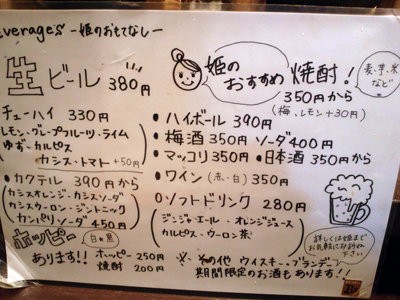 everages -姫のおもてなし-
生ビール 380円
チューハイ 330円
レモン・グレープフルーツ・ライム
ゆず・カルピス
カシス・トマト +50円
・カクテル 390円から
カシスオレンジ・カシスソーダ
カシスウーロン・ジントニック
カンパリソーダ 450円
ホッピー 白・黒
あります!! ホッピー 250円
焼酎 200円
姫の
おすすめ 焼酎!
麦・芋・米
など
350円から
(梅、レモン+30円)
・ハイボール 390円
・梅酒 350円 ソーダ400円
・マッコリ 350円 ・日本酒 350円
・ワイン (赤・白) 350円
○ソフトドリンク 280円
ジンジャーエール・オレンジジュース
カルピス・ウーロン茶
※その他 ウイスキー・ブランデー
期間限定のお酒もあります!!
詳しくは姫まで
お気軽にお訪ね
下さい